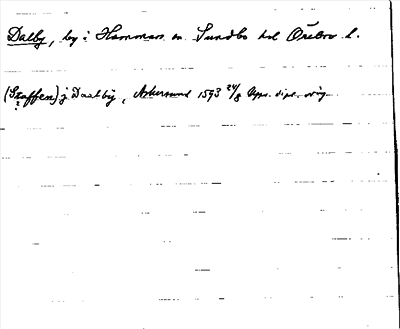 Dalby, by i Hammars sn Sundbo hd Örebro l.
(Staffen) j Daalby, Askersund 1593 24/8 Upps. dipl. orig.